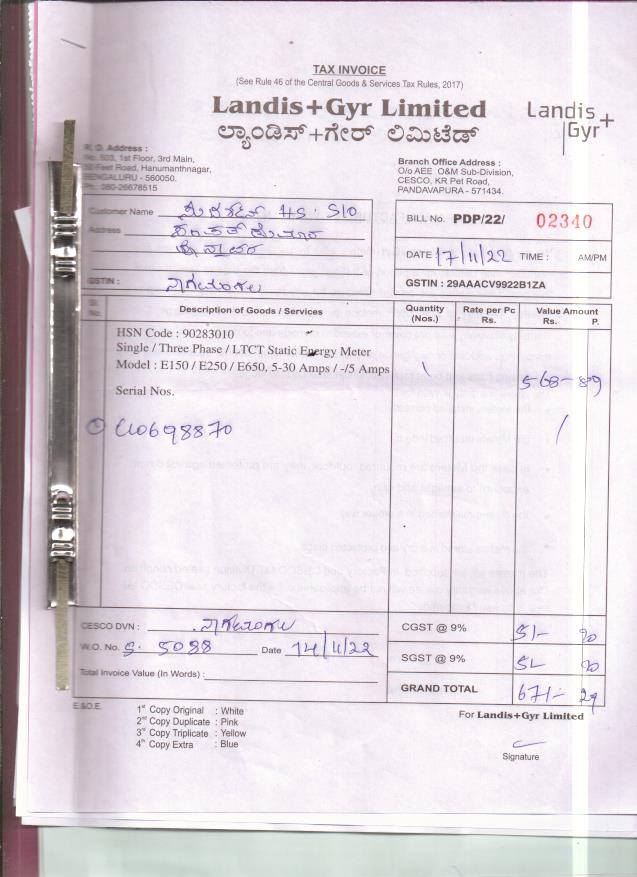 TAX INVOICE
(See Rule 46 of the Central Goods & Services Tax Rules, 2017)
Landis+Gyr Limited
ಲ್ಯಾಂಡಿಸ್+ಗೇರ್ ಲಿಮಿಟೆಡ್
Landis+
Gyr
R. O. Address :
No. 503, 1st Floor, 3rd Main,
Feet Road, Hanumanthnagar,
BENGALURU - 560050.
Ph. 080-26678515
Branch Office Address :
O/o AEE O&M Sub-Division,
CESCO, KR Pet Road,
PANDAVAPURA - 571434.
Customer Name
Address
GSTIN : ನಾಗಮಂಗಲ
BILL No. PDP/22/ 02340
DATE 17/11/22 TIME : AM/PM
GSTIN : 29AAACV9922B1ZA
Sl. No. Description of Goods / Services Quantity (Nos.) Rate per Pc Rs. Value Amount Rs. P.
HSN Code : 90283010
Single / Three Phase / LTCT Static Energy Meter
Model : E150 / E250 / E650, 5-30 Amps / -/5 Amps 1 568-89
Serial Nos.
CESCO DVN : ನಾಗಮಂಗಲ
W.O. No. 5088 Date 14/11/22
Total Invoice Value (In Words) :
CGST @ 9% 51- 20
SGST @ 9% 51- 20
GRAND TOTAL 671- 29
E.&O.E.
1st Copy Original : White
2nd Copy Duplicate : Pink
3rd Copy Triplicate : Yellow
4th Copy Extra : Blue
For Landis+Gyr Limited
Signature